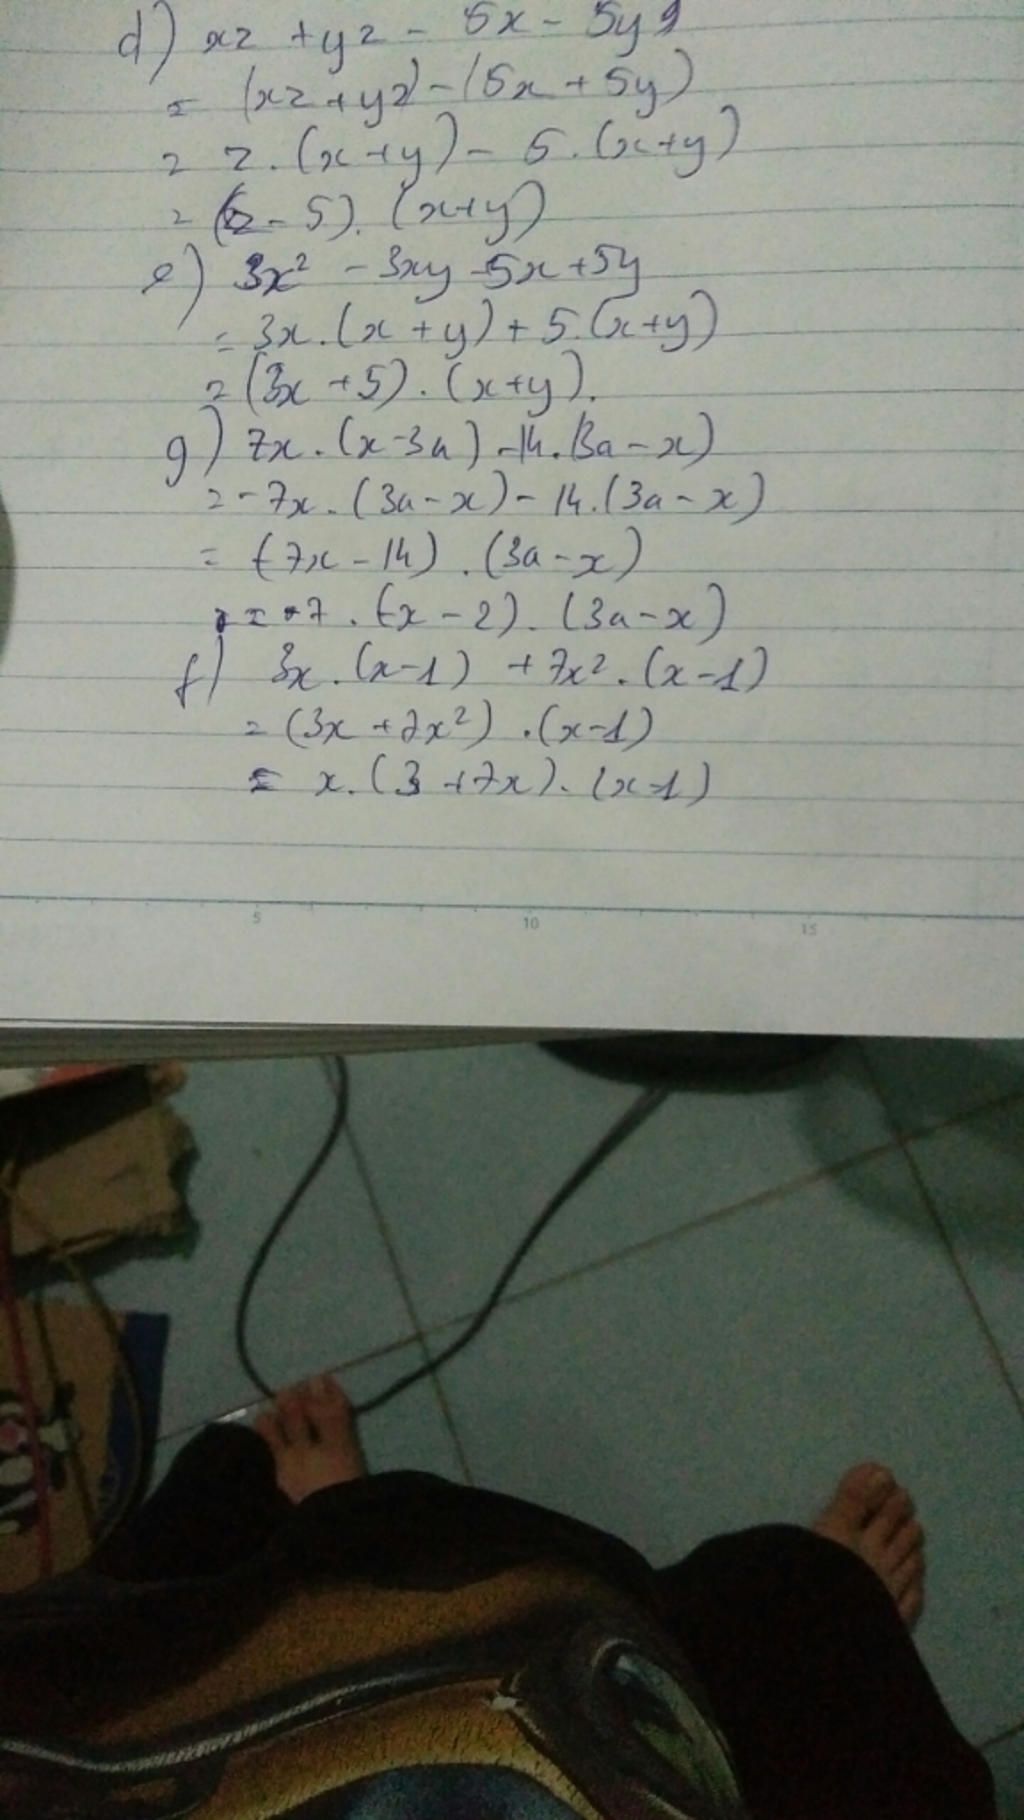 d) xz + yz - 5x - 5y
= (xz + yz) - (5x + 5y)
= z . (x + y) - 5 . (x + y)
= (z - 5) . (x + y)
e) 3x² - 3xy - 5x + 5y
= 3x . (x + y) + 5 . (x + y)
= (3x + 5) . (x + y).
g) 7x . (x - 3a) - 14 . (3a - x)
= - 7x . (3a - x) - 14 . (3a - x)
= (-7x - 14) . (3a - x)
= 7 . (-x - 2) . (3a - x)
f) 3x . (x - 1) + 7x² . (x - 1)
= (3x + 7x²) . (x - 1)
= x . (3 + 7x) . (x - 1)
5 10 15